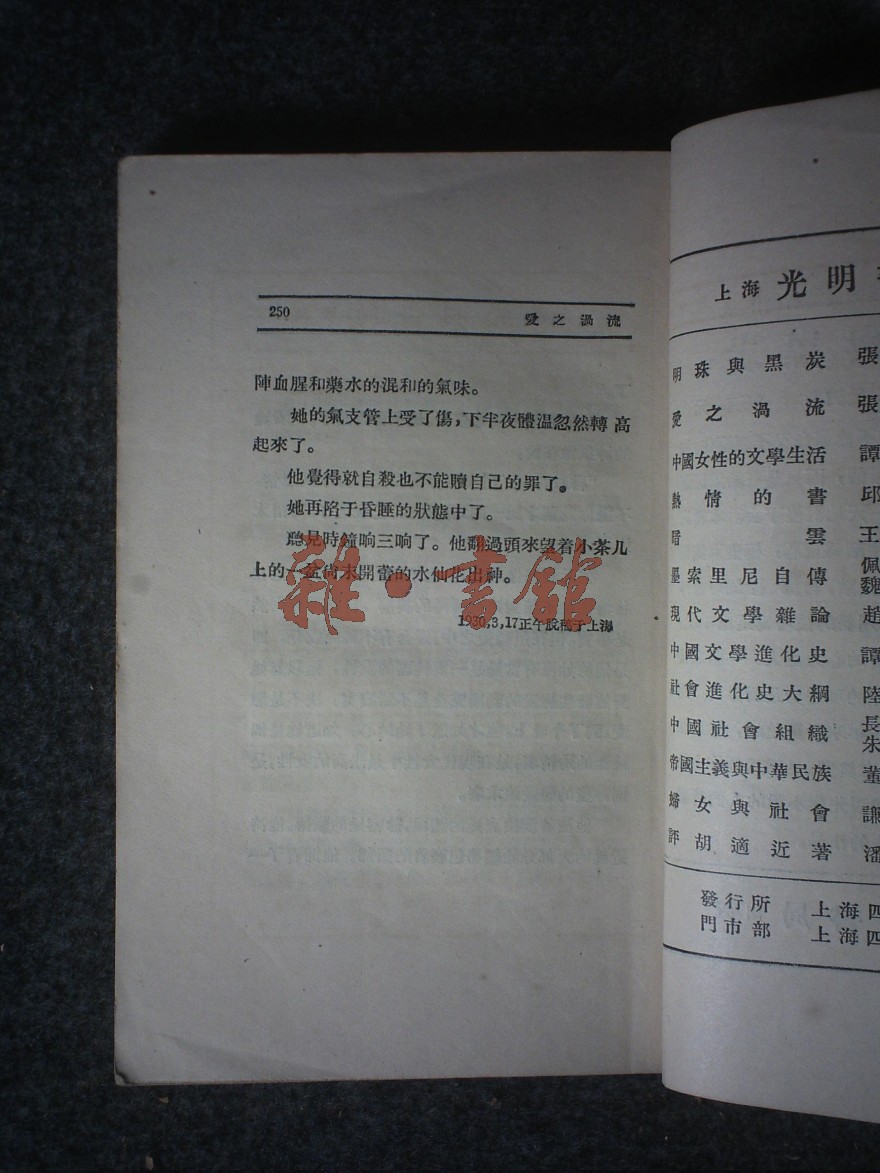 250
愛之渦流
陣血腥和藥水的混和的氣味。
她的氣支管上受了傷，下半夜體溫忽然轉高
起來了。
他覺得就自殺也不能贖自己的罪了。
她再陷于昏睡的狀態中了。
聽見時鐘响三响了。他翻過頭來望着小茶几
上的一盆尙未開蕾的水仙花出神。
1930,3,17正午脫稿于上海
雜·書館
上海 光明
明珠與黑炭 張
愛之渦流 張
中國女性的文學生活 譚
熱情的書 邱
暗雲 王
墨索里尼自傳 佩
魏
現代文學雜論 趙
中國文學進化史 譚
社會進化史大綱 陸
中國社會組織 長
朱
帝國主義與中華民族 董
婦女與社會 謙
評胡適近著 潘
發行所 上海四
門市部 上海四